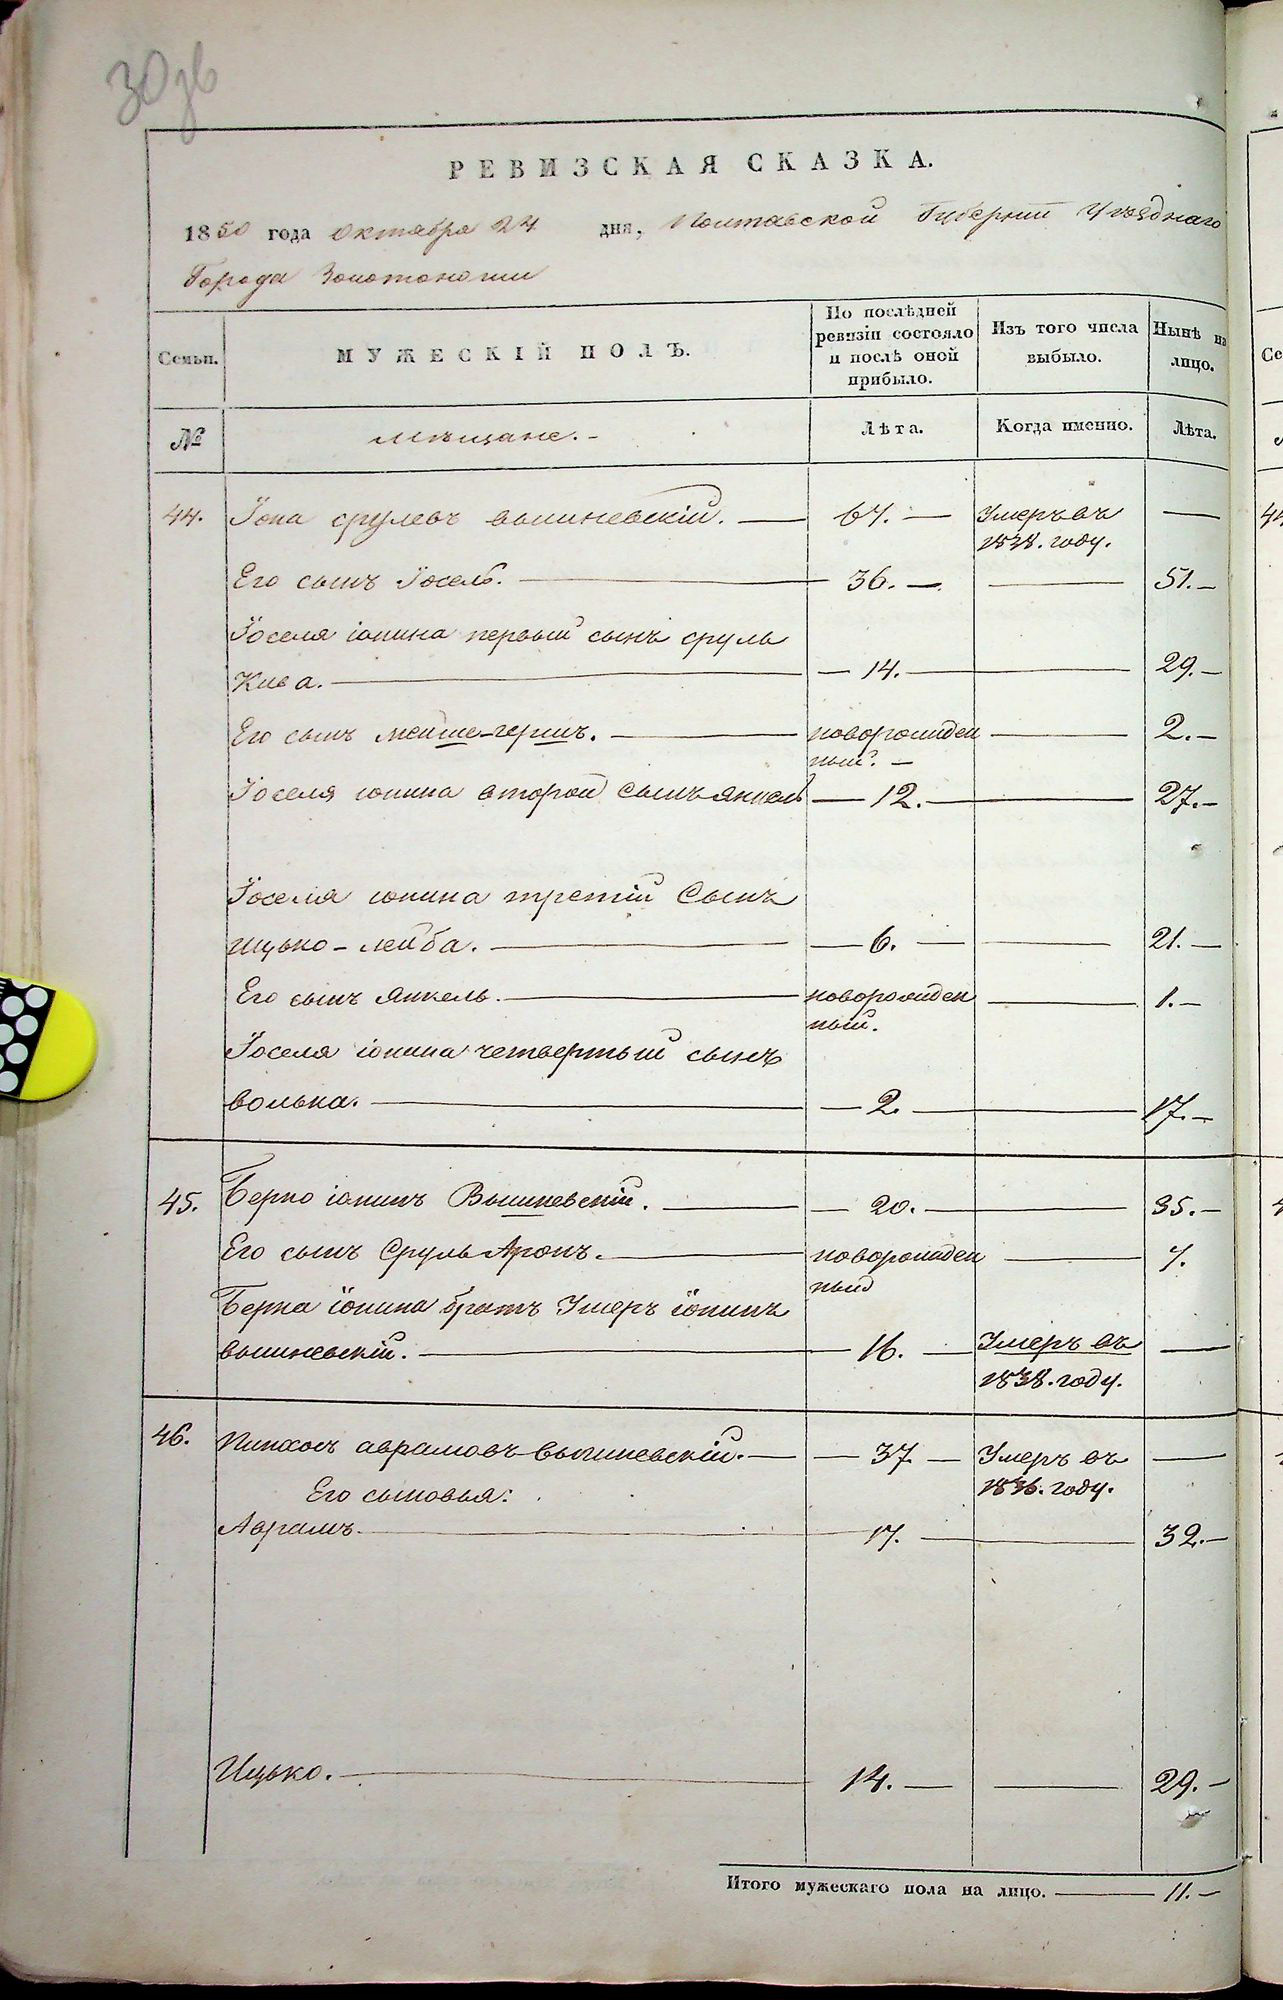 30 зв
РЕВИЗСКАЯ СКАЗКА.
1850 года Октября 24 дня, Полтавской Губернии Уѣзднаго
Города Золотоноши
Семьи. МУЖЕСКІЙ ПОЛЪ. По послѣдней ревизіи состояло и послѣ оной прибыло. Изъ того числа выбыло. Нынѣ на лицо.
№ мѣщане.- Лѣта. Когда именно. Лѣта.
44. Іона срулевъ вышневскій. — 67. — Умеръ въ —
1838. году.
Его сынъ Іосель. — 36. — — 51.—
Іоселя іонина первый сынъ сруль
Кива. — 14. — 29.—
Его сынъ мейше-гершъ. — новорожден — 2.—
ный. —
Іоселя іонина второй сынъ янкель — 12. — 27.—
Іоселя іонина третій Сынъ
ицько-лейба. — 6. — — 21.—
Его сынъ янкель. — новорожден — 1.—
ный.
Іоселя іонина четвертый сынъ
волька. — 2. — 17.—
45. Берко іонинъ Вышневскій. — 20. — 35.—
Его сынъ Сруль Аронъ. — новорожден — 7.
ный
Берка іонина братъ Умеръ іонинъ
вышневскій. — 16. — Умеръ въ —
1838. году.
46. Пинхасъ аврамовъ вышневскій. — 37 — Умеръ въ —
1836. году.
Его сыновья:
Аврамъ. — 17. — 32.—
Ицько. — 14. — — 29.—
Итого мужескаго пола на лицо. — 11.—